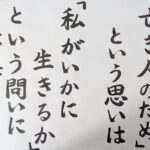 亡き人のため
という思いは
「私がいかに
生きるか」
という問いに